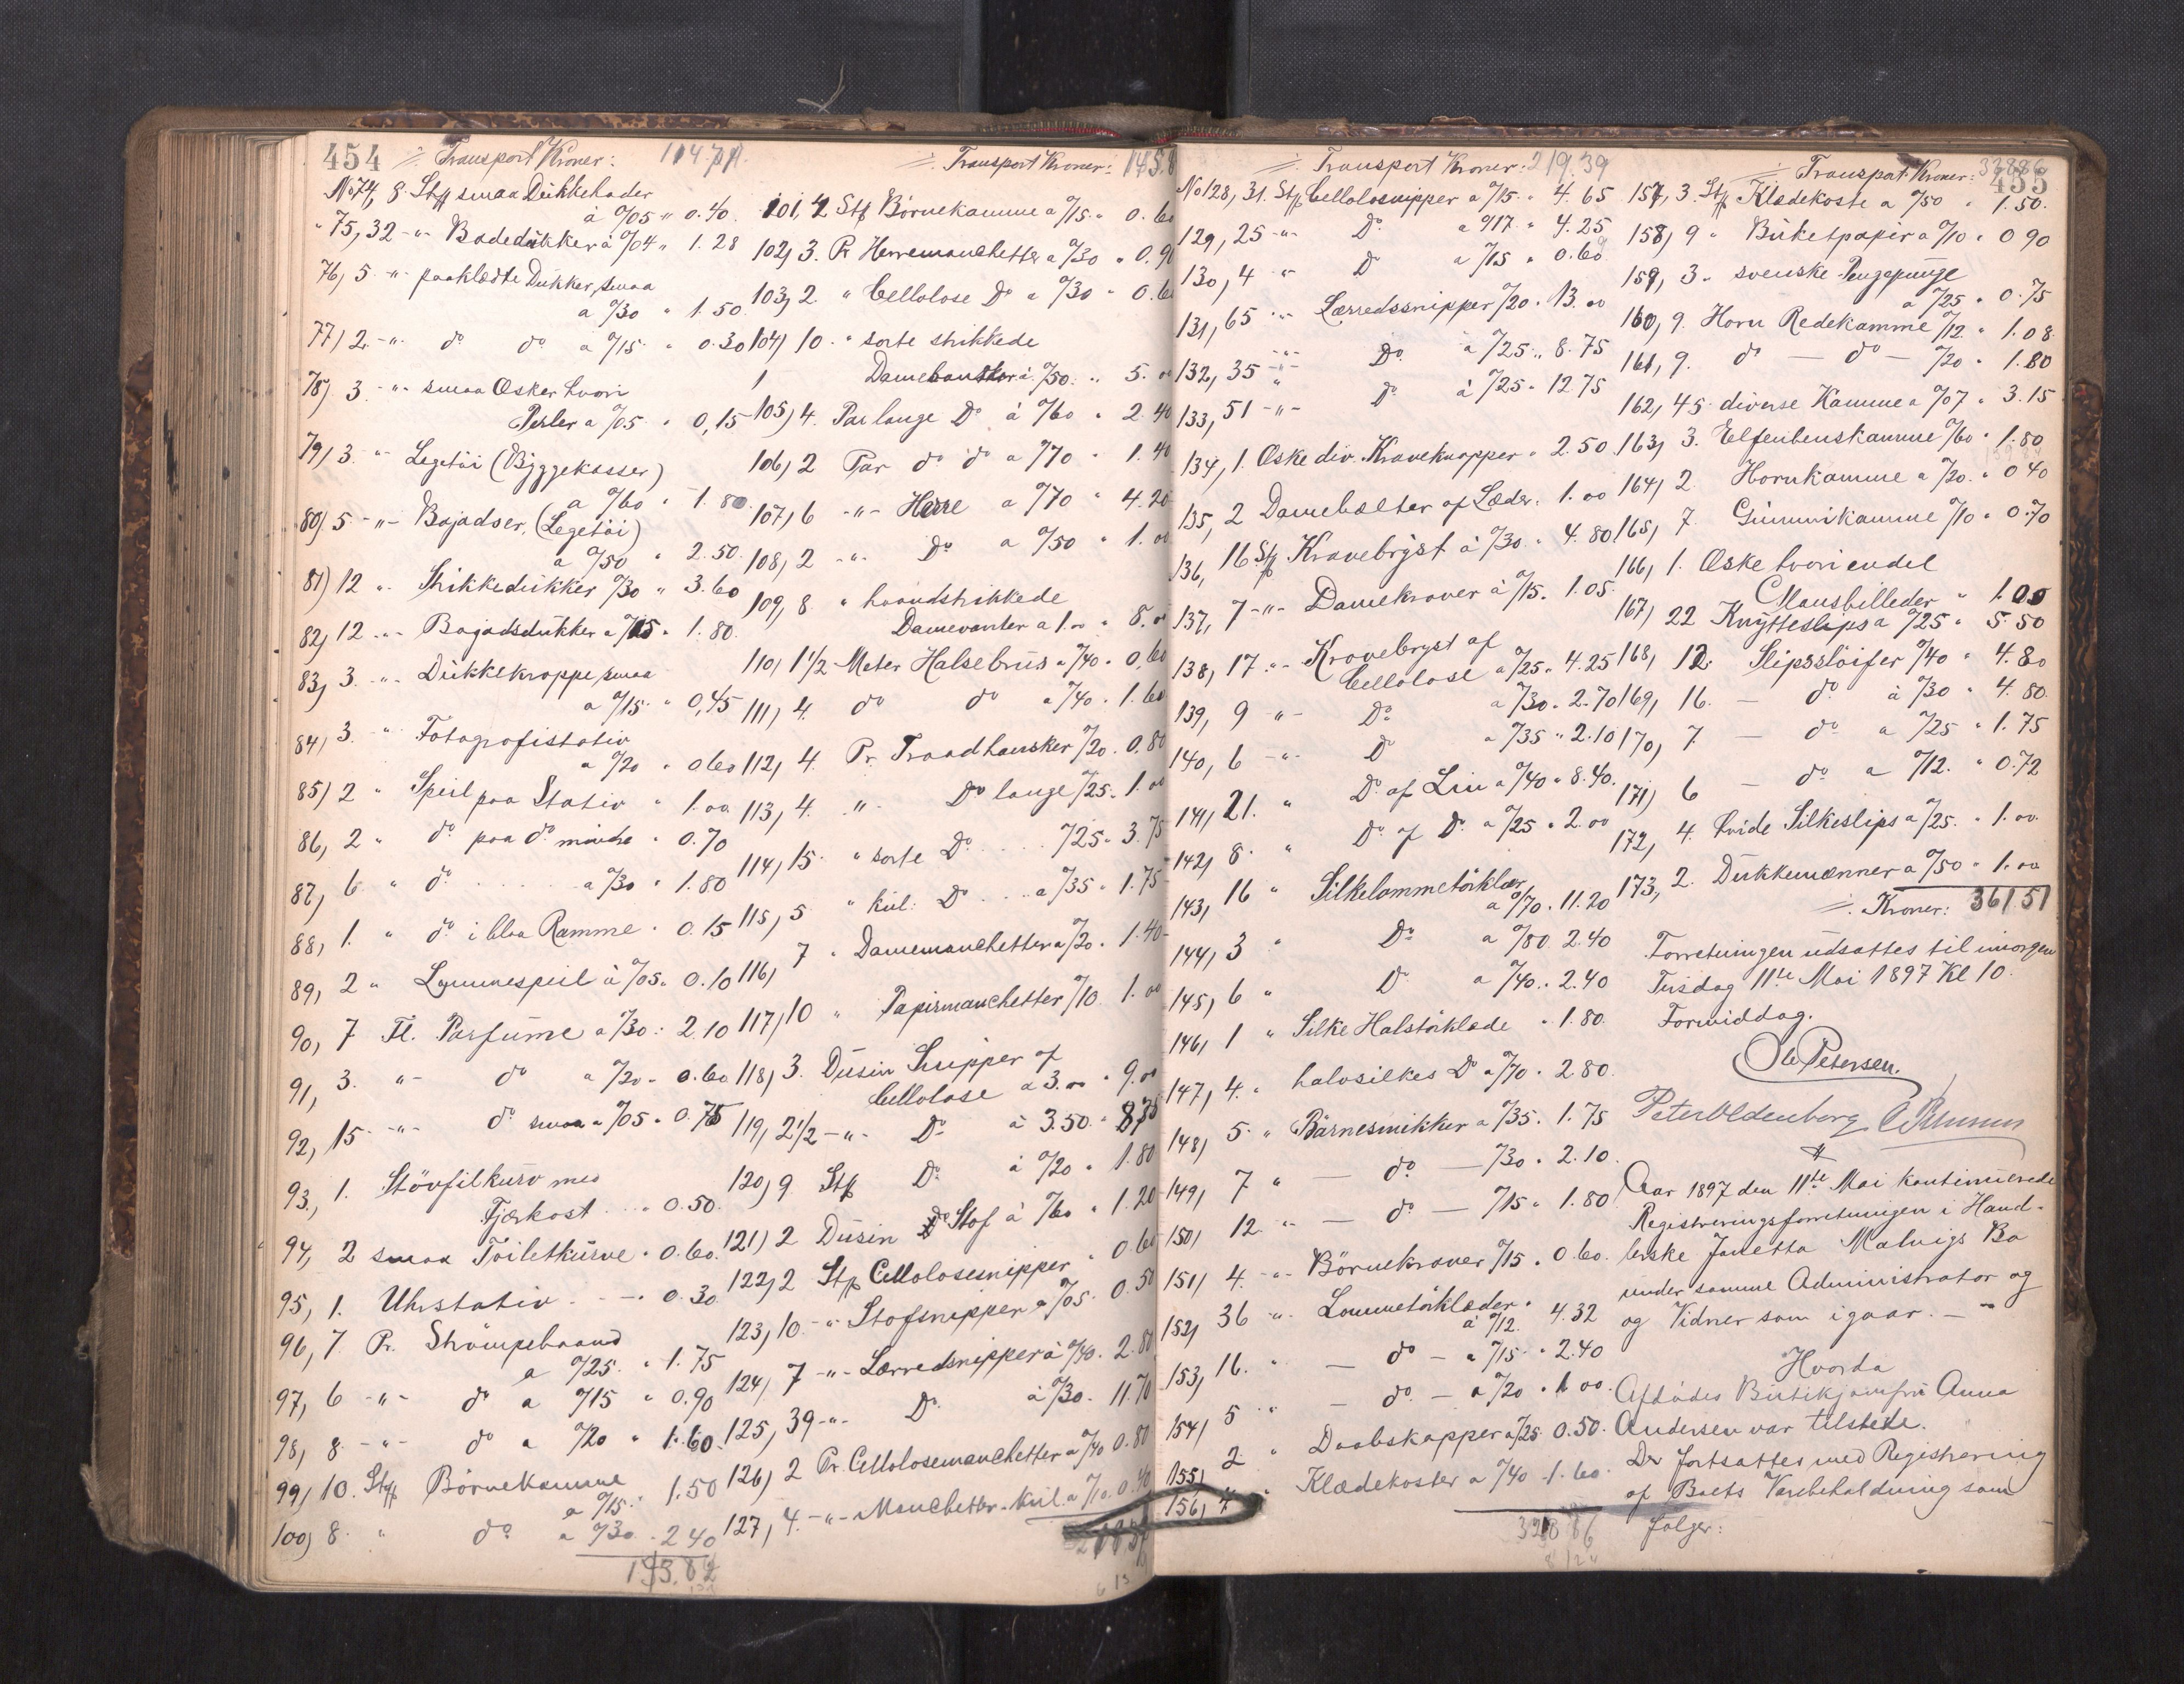 454 Transport Kroner:
No 74, 8. Stk smaa Dükkehoder
à 0/05 " 0.40.
" 75, 32 -"- Badedükker à 0/04 " 1.28
76, 5 -"- paaklædte Dukker, smaa
a 0/30 " 1.50
77) 2 -"- do do a 0/15 " 0.30
78) 3 -"- smaa Æsker hvori
Perler a 0/05 " 0,15
79, 3 -"- Legetöi (Byggekasser)
a 0/60 " 1.80
80) 5 -"- Bajadser, (Legetöi)
a 0/50 " 2.50.
81) 12 " Strikkedükker 0/30 " 3.60
82, 12 -"- Bajadsdükker a 0/15 " 1.80.
83, 3. -"- Dükkekroppe, smaa
a 0/15 " 0,45
84, 3. " Fotografistativ
a 0/20 " 0.60
85) 2 " Speil paa Stativ " 1.00
86, 2 " do paa do mindre " 0.70
87, 6 " do a 0/30 " 1.80
88, 1. " do i blaa Ramme " 0.15
89, 2 " Lommespeil à 0/05 " 0.10
90, 7 Fl. Parfüme a 0/30 : 2.10
91, 3. -"- do a 0/20 " 0.60
92, 15 -"- do smaa a 0/05 " 0.75
93, 1. Stövfilkurv med
Fjærkost " 0.50.
94, 2 smaa Toiletkürve " 0.60.
95, 1. Uhrstativ 0.30
96, 7. Pr. Strömpebaand
a 0/25. " 1.75
97, 6 -"- do a 0/15 " 0.90
98, 8. -"- do a 0/20 " 1.60
99, 10. Stk Börnekamme
a 0/15 1.50
100, 8 " do a 0/30 . 2.40
Transport Kroner:
101, 4. Stk Börnekamme a 0/15 " 0.60
102, 3. Pr Herremanchetter a 0/30 " 0.90
103, 2. " Cellolose Do a 0/30 " 0.60
104, 10. " sorte strikkede
a 0/50. " 5.00
105, 4. Par lange Do à 0/60 " 2.40
106, 2 Par do do a 0/70 " 1.40
107, 6 -"- Herre a 0/70 " 4.20
108, 2 -"- Do a 0/50 " 1.00
109, 8 " haandstrikkede
Damevanter a 1.00 " 8.00
110, 1 1/2 Meter Halsebrüs a 0/40 " 0,60
111, 4. do do a 0/40 . 1.60
112, 4. Pr. Traadhansker 0/20 . 0.80
113, 4. " Do lange 0/25 . 1.00
114, 15. " sorte Do 0/25 " 3.75
115, 5 " kul: Do a 0/35 " 1.75
116, 7 " Damemanchetter a 0/20 . 1.40
117, 10 " Papirmanchetter 0/10 1.00
118, 3. Düsin Snipper af
Cellolose a 3.00 " 9.00
119, 2 1/2 -"- Do à 3.50 " 8.75
120, 9 Stk Do à 0/20 " 1.80
121) 2 Düsin Do Stof à 0/60 " 1.20
122, 2 Stk Cellolosesnipper " 0.60
123, 10. -"- Stofsnipper a 0/05 . 0.50
124, 7 -"- Lærredsnipper à 0/40 . 2.80
125, 39 -"- Do. à 0/30 . 11.70
126, 2 Pr. Cellolosemanchetter a 0/40 0.80
127, 4. -"- Manchetter. kul. a 0/10. 0.40
Transport Kroner: 219.39
No 128, 31. Stk Cellolosnipper a 0/15. " 4.65
129, 25 -"- Do a 0/17 " 4.25
130, 4 -"- Do a 0/15 " 0.60
131, 65 -"- Lærredssnipper 0/20 . 13.00
132, 35 -"- Do. à 0/25 " 8.75
133, 51 -"- Do. à 0/25 " 12.75
134, 1. Æske div. Kraveknapper " 2.50
135, 2 Damebælter af Læder. 1.00
136, 16 Stk Kravebryst à 0/30 " 4.80
137, 7 -"- Damekraver à 0/15. 1.05.
138, 17 -"- Kravebryst af
Cellolose a 0/25 " 4.25
139, 9 -"- Do. a 0/30 . 2.70
140, 6 -"- Do a 0/35 " 2.10
141, 21. " Do. af Lin a 0/40 " 8.40.
142, 8. " Do. af Do. a 0/25 " 2.00
143, 16 " Silkelommetörklær
a 0/70 . 11.20
144, 3 " Do. a 0/80. 2.40
145, 6 " Do a 0/40. . 2.40
146, 1 " Silke Halstörklæde " 1.80.
147, 4. " halvsilkes Do a 0/70 . 2.80.
148, 5. " Barnesmikker a 0/35. 1.75
149, 7 " — do — 0/30 . 2.10.
150, 12 " — do — 0/15 . 1.80
151, 4. -"- Börnekraver 0/15 . 0.60.
152, 36 -"- Lommetörklæder.
à 0/12. 4.32
153, 16. " — do — a 0/15 . 2.40
154, 5 " — do — a 0/20 . 1.00.
155, 2 " Daabskapper a 0/25. 0.50.
156, 4 Klædekoster a 0/40 . 1.60.
Transport Kroner: 455
157, 3. Stk Klædekoste a 0/50 " 1.50.
158, 9 " Büketpapir a 0/10 " 0 90
159, 3 " svenske Pengepünge
a 0/25 " 0.75
160, 9. Horn Redekamme 0/12. " 1.08.
161, 9. do — do — 0/20 " 1.80
162, 45 diverse Kamme a 0/07 " 3.15
163, 3. Elfenbenskamme 0/60 " 1.80
164, 2 Hornkamme a 0/20 . " 0 40
165, 7. Gümmikamme 0/10 " 0.70
166, 1. Æske hvori endel
Glansbilleder " 1.00
167, 22 Knytteslips a 0/25 " 5.50
168, 12. Slipsslöifer 0/40 " 4.80
169, 16. — do à 0/30 " 4.80.
170, 7. — do a 0/25 " 1.75
171) 6 — do a 0/12. " 0.72
172, 4. hvide Silkeslips a 0/25. " 1.00.
173, 2. Dükkemænner a 0/50 " 1.00
Kroner: 361.51
Forretningen udsattes til imorgen
Tirsdag 11te Mai 1897 Kl 10.
Formiddag.
Ole Petersen.
Peter Oldenborg
Aar 1897 den 11te Mai kontinuerede
Registreringsforretningen i Hand-
lerske Janetta Malvigs Bo
under samme Administrator og
og Vidner som igaar. —
Hvorda
Afdödes Bütikjomfrü Anna
Andersen var tilstede.
Der fortsattes med Registrering
af Boets Varebeholdning som
fölger: